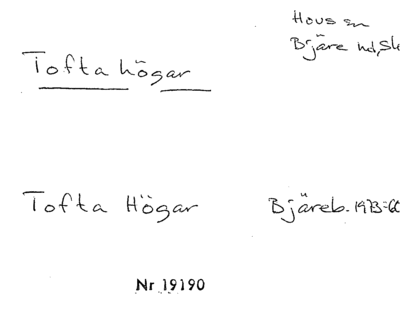 Hovs sn
Bjäre hd, Sk
Tofta högar
Tofta Högar
Bjäreb. 1973
Nr 19190